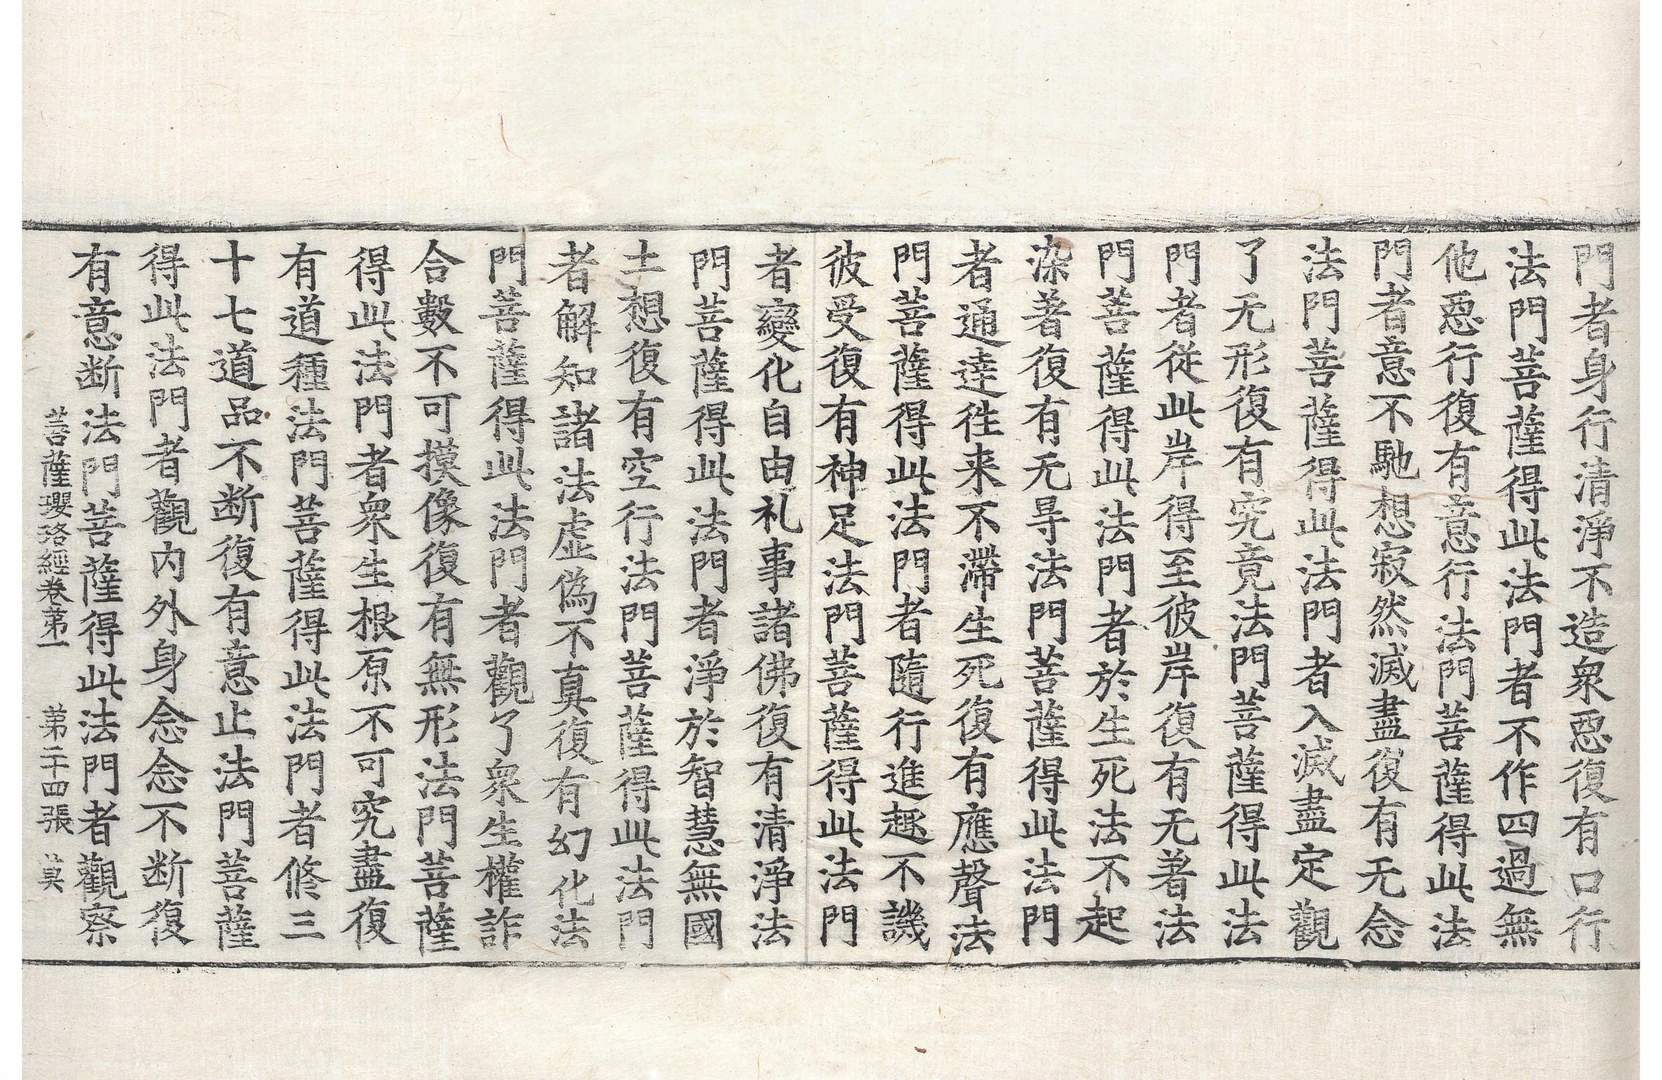 門者身行清淨不造衆惡復有口行
法門菩薩得此法門者不作四過無
他惡行復有意行法門菩薩得此法
門者意不馳想寂然滅盡復有无念
法門菩薩得此法門者入滅盡定觀
了无形復有究竟法門菩薩得此法
門者從此岸得至彼岸復有无著法
門菩薩得此法門者於生死法不起
染著復有无㝵法門菩薩得此法門
者通達徃来不滯生死復有應聲法
門菩薩得此法門者隨行進趣不譏
彼受復有神足法門菩薩得此法門
者變化自由礼事諸佛復有清淨法
門菩薩得此法門者淨於智慧無國
土想復有空行法門菩薩得此法門
者解知諸法虛僞不真復有幻化法
門菩薩得此法門者觀了衆生權詐
合數不可摸像復有無形法門菩薩
得此法門者衆生根原不可究盡復
有道種法門菩薩得此法門者修三
十七道品不断復有意止法門菩薩
得此法門者觀內外身念念不断復
有意断法門菩薩得此法門者觀察
菩薩瓔珞經卷第一 第二十四張 莫